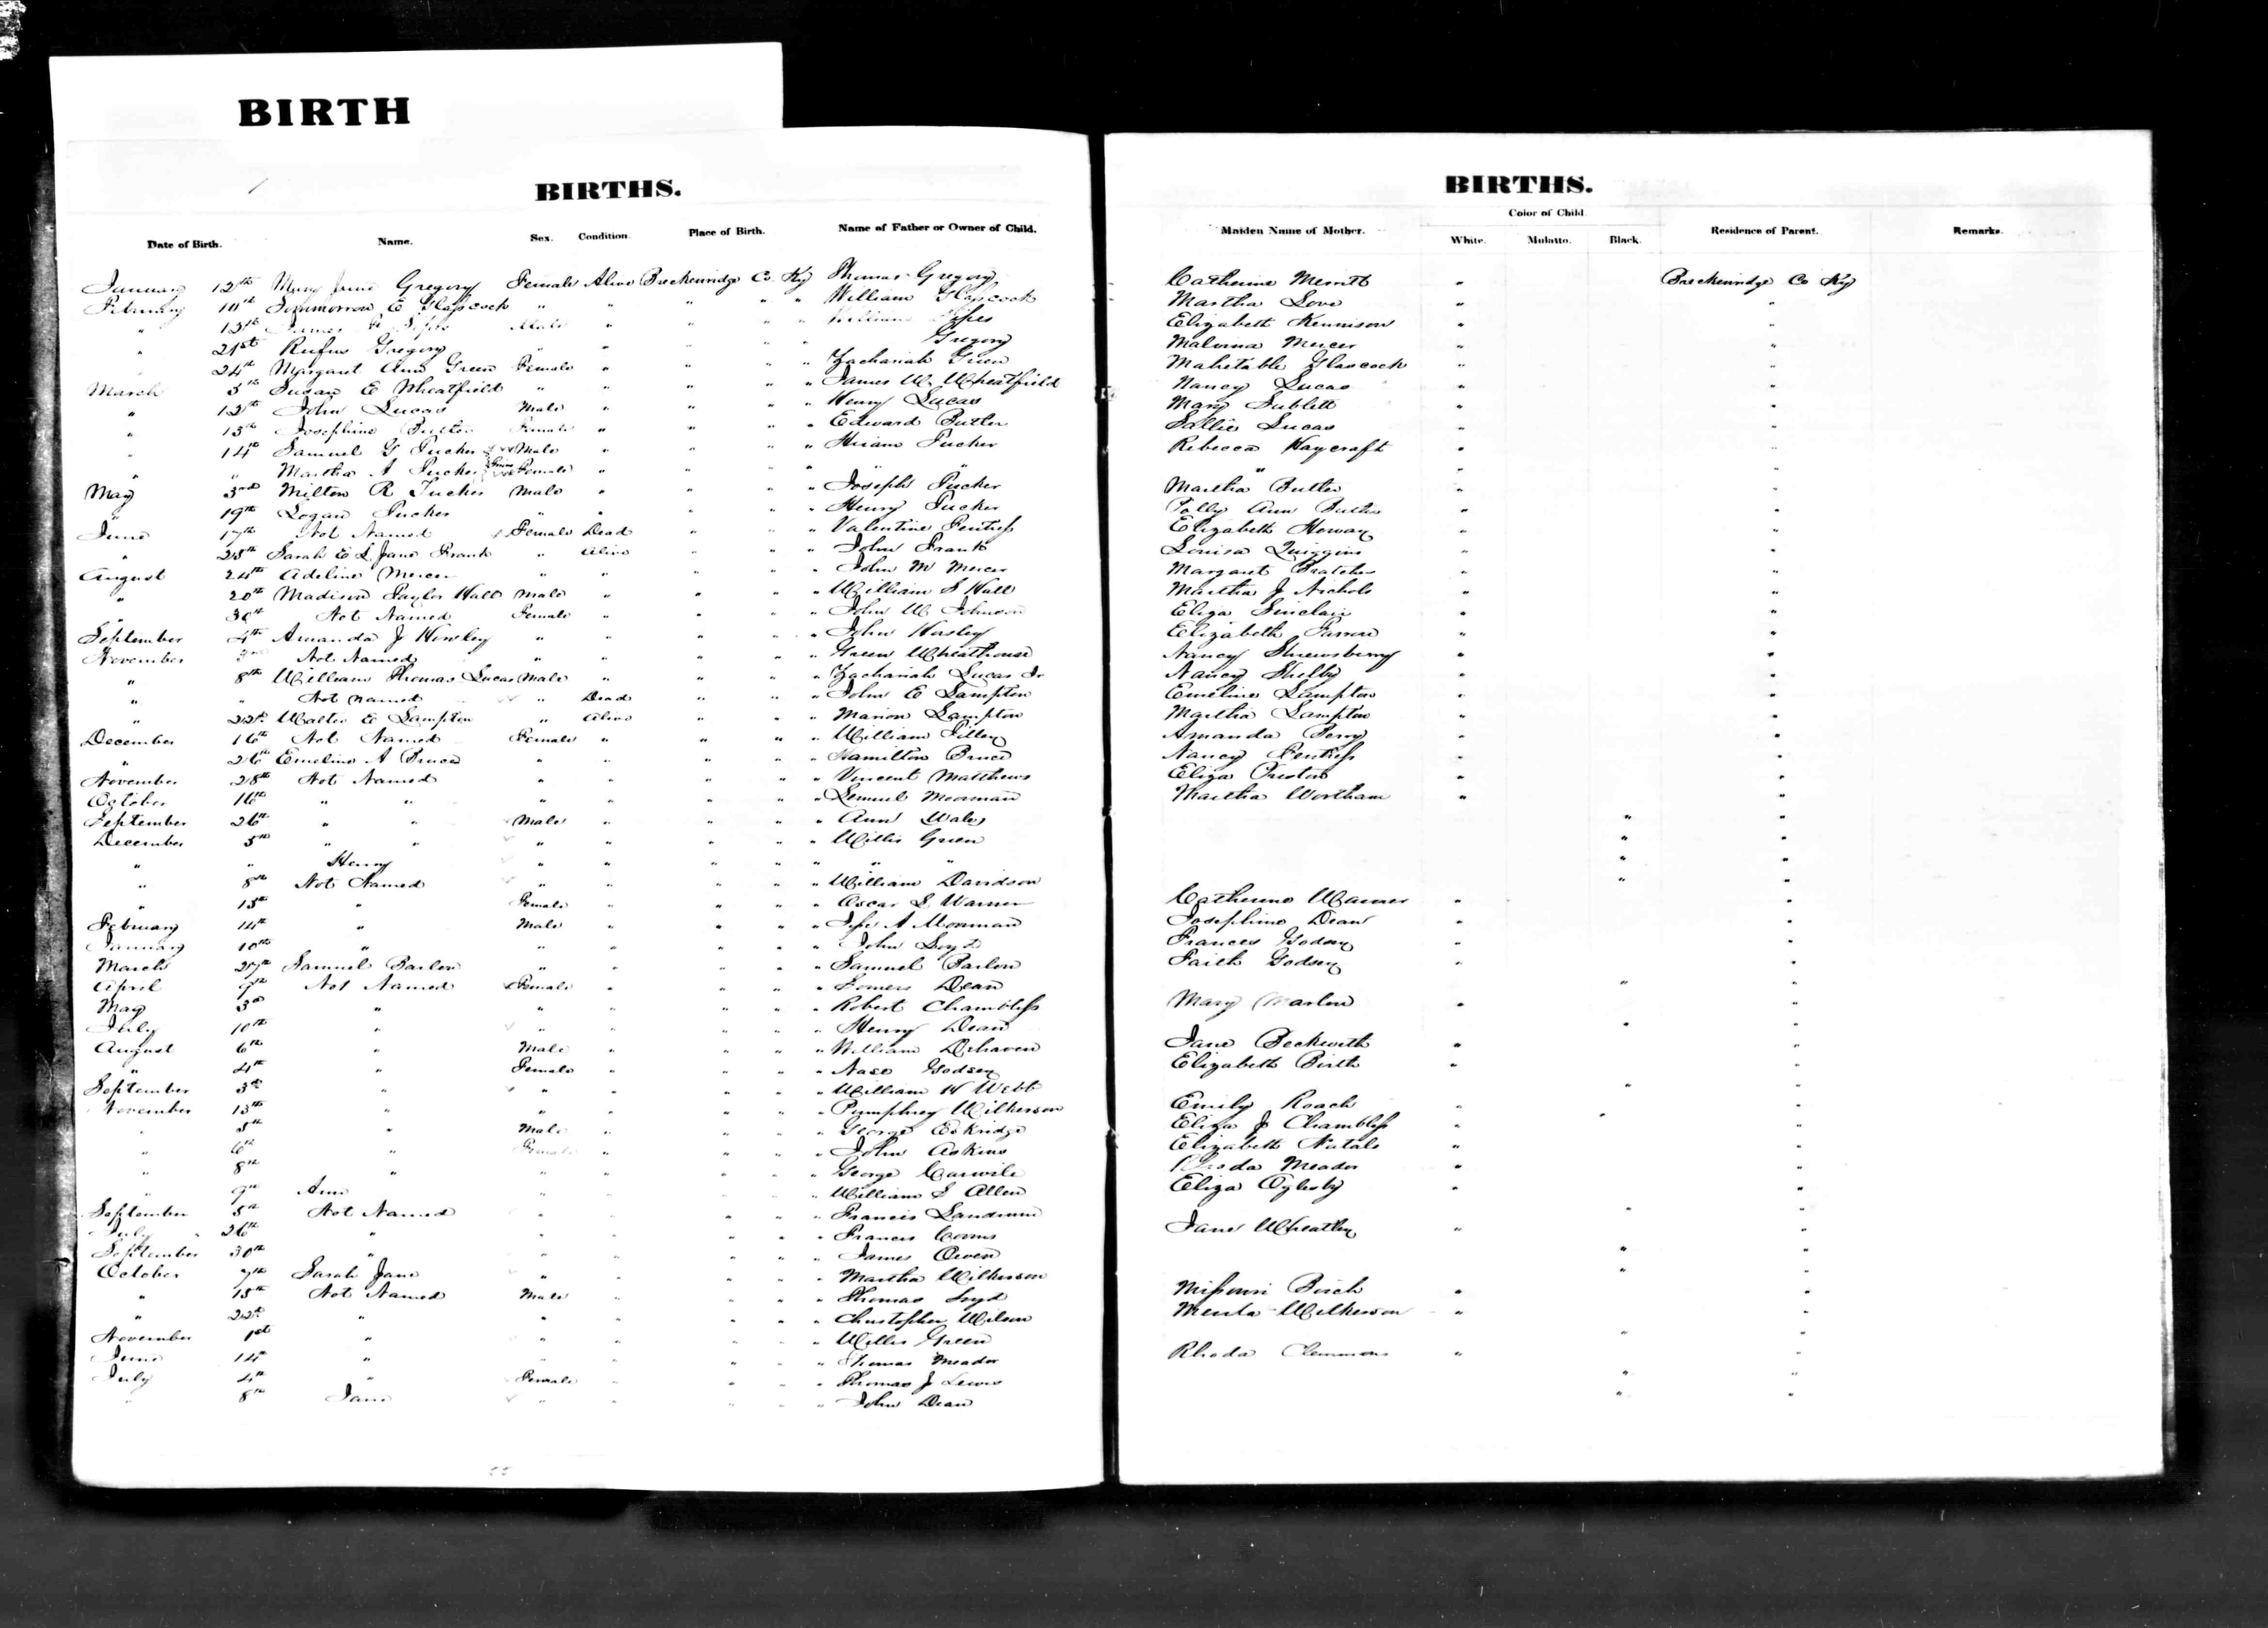 BIRTH
BIRTHS.
Date of Birth. Name. Sex. Condition. Place of Birth. Name of Father or Owner of Child.
January 12th Mary Jane Gregory Female Alive Breckenridge Co Ky Thomas Gregory
February 10th E Glasscock " " " " " William Glasscock
" 15th James Male " " " " William
" 21st Rufus Gregory " " " " Gregory
" 24th Margaret Ann Green Female " " " " Zachariah Green
March 5th Susan E Wheatfield " " " " " James W. Wheatfield
" 12th John Lucas Male " " " " Henry Lucas
" 13th Josephine Butler Female " " " " Edward Butler
" 14th Samuel G Tucker Male " " " " Hiram Tucker
" " Martha A Tucker Twins Female " " " " " "
May 3rd Milton R Tucker Male " " " " Joseph Tucker
" 19th Logan Tucker " " " " " Henry Tucker
June 17th Not Named Female Dead " " " Valentine Fentress
" 25th Sarah E L Jane Frank " Alive " " " John Frank
August 24th Adeline Mercer " " " " " John M Mercer
" 20th Madison Taylor Hall Male " " " " William S Hall
" 30th Not Named Female " " " " John W Johnson
September 4th Amanda J Horsley " " " " " John Horsley
November Not Named " " " " " Green Wheathouse
" 8th William Thomas Lucas Male " " " " Zachariah Lucas Jr
" " Not named " Dead " " " John E Lampton
" 22d Walter E Lampton " Alive " " " Marion Lampton
December 16th Not Named Female " " " " William Tilley
" 26th Emeline A Bruce " " " " " Hamilton Bruce
November 28th Not Named " " " " " Vincent Matthews
October 16th " " " " " " " Lemuel Moorman
September 26th " " Male " " " " Ann Wales
December 5th " " " " " " " Willis Green
" " Henry " " " " " " "
" 8th Not Named " " " " " William Davidson
" 15th " Female " " " " Oscar L Warner
February 14th " Male " " " " A Moorman
January 10th " " " " " " John Loyd
March 27th Samuel Barlow " " " " " Samuel Barlow
April 9th Not Named Female " " " " Dean
May 3d " " " " " Robert Chambliss
July 10th " " " " " " Henry Dean
August 6th " Male " " " " William Dehaven
" 4th " Female " " " " Nace Godsey
September 3d " " " " " William H Webb
November 13th " " " " " " Pumphrey Wilkerson
" 5th " Male " " " " George Eskridge
" 6th " Female " " " " John Askins
" 8th " " " " " " George Carwile
" 9th Ann " " " " " William S Allen
September 5th Not Named " " " " Francis Landrum
July 26th " " " " " " Francis Corms
September 30th " " " " " " James Owen
October 7th Sarah Jane " " " " " Martha Wilkerson
" 15th Not Named Male " " " " Thomas Loyd
" 22d " " " " " " Christopher Wilson
November 1st " " " " " " Willis Green
June 14th " " " " " Thomas Meador
July 4th " Female " " " " Thomas J Lewis
" 8th Jane " " " " " John Dean
BIRTHS.
Maiden Name of Mother. Color of Child. White. Mulatto. Black. Residence of Parent. Remarks.
Catherine Merritt " Breckenridge Co Ky
Martha Love " "
Elizabeth Kennison " "
Malvina Mercer " "
Mahetable Glasscock " "
Nancy Lucas " "
Mary Sublett " "
Sallie Lucas " "
Rebecca Haycraft " "
" " "
Martha Butler " "
Polly Ann Butler " "
Elizabeth Howay " "
Louisa Quiggins " "
Margaret Bratcher " "
Martha J Nichols " "
Eliza Sinclair " "
Elizabeth " "
Nancy Shrewsberry " "
Nancy Shelby " "
Emeline Lampton " "
Martha Lampton " "
Amanda Berry " "
Nancy Fentress " "
Eliza Preston " "
Martha Wortham " "
" "
" "
" "
" "
Catherine Warner " "
Josephine Dean " "
Frances Godsey " "
Faith Godsey " "
" "
Mary Marlow " "
" "
Jane Beckwith " "
Elizabeth Birth " "
" "
Emily Roach " "
Eliza J Chambliss " "
Elizabeth Natals " "
Rhoda Meador " "
Eliza Oglesby " "
" "
Jane Wheatley " "
" "
" "
Missouri Birch " "
Wilkerson " "
" "
Rhoda Clemmons " "
" "
" "